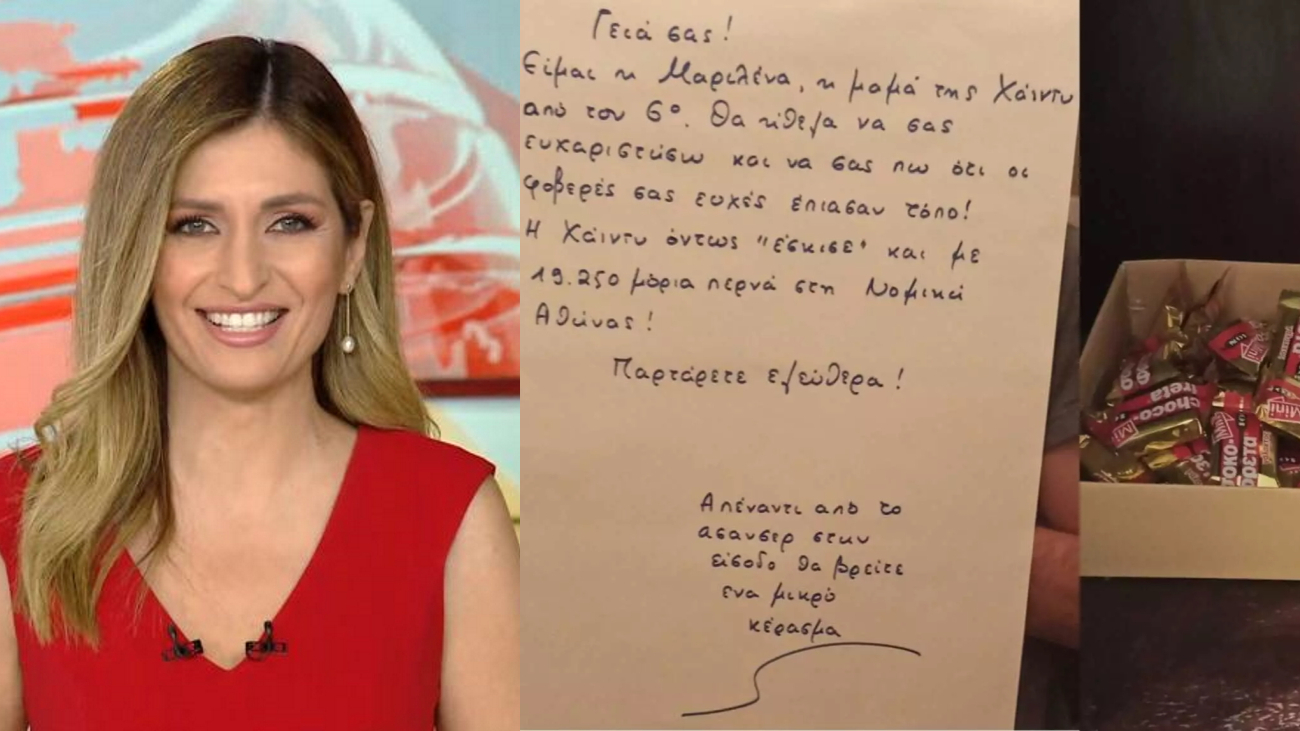 Γειά σας!
Είμαι η Μαριλένα, η μαμά της Χάιντυ
από τον 6º. Θα ήθελα να σας
ευχαριστήσω και να σας πω ότι οι
φοβερές σας ευχές έπιασαν τόπο!
Η Χάιντυ όντως "έσκισε" και με
19.250 μόρια περνά στη Νομική
Αθήνας!
Παρτάρετε ελεύθερα!
Απέναντι από το
ασανσερ στην
είσοδο θα βρείτε
ενα μικρό
κέρασμα
choco-
Mini
Mini